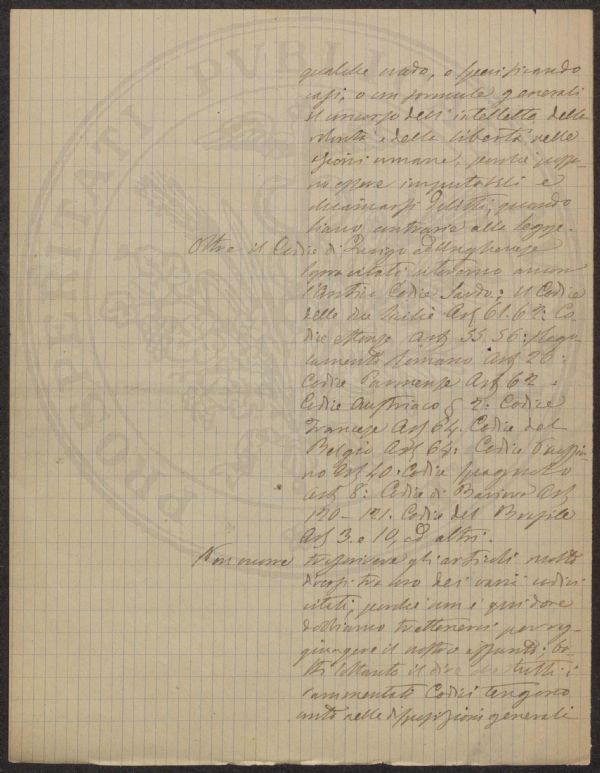 PROSPERITATI PVBLI
qualche modo, o specificando
casi, o con formule generali
il concorso dell'intelletto della
volontà e della libertà nelle
azioni umane, perchè possa-
no essere imputabili e
chiamarsi delitti, quando
siano contrarie alla legge.
Oltre il Codice di
citati ancora
l'antico Codice Sardo; il Codice
delle due Sicilie Art 61.62: Co-
dice estense Art 55.56: Rego-
lamento Romano Art 26:
Codice Parmense Art 62.
Codice Austriaco § 2: Codice
Francese Art 64. Codice del
Belgio Art 64: Codice Prussia-
no Art 40: Codice Spagnuolo
Art 8: Codice di Baviera Art
120-121. Codice del Brasile
Art 3. e 10, ed altri.
trascrivere gli articoli molto
dei varii codici
citati, perchè non è qui dove
dobbiamo trattenerci per rag-
giungere il nostro assunto; ba-
sti soltanto il dire che tutti i
rammentati Codici tengono
conto nelle disposizioni generali